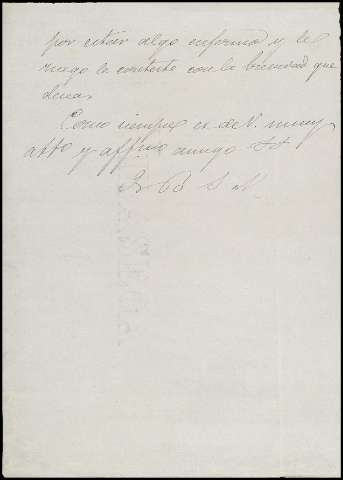 por estar algo enfermo y le
ruego le conteste con la brevedad que
desea,
Como siempre es de V. muy
atto y affmo amigo SS
Q B S M